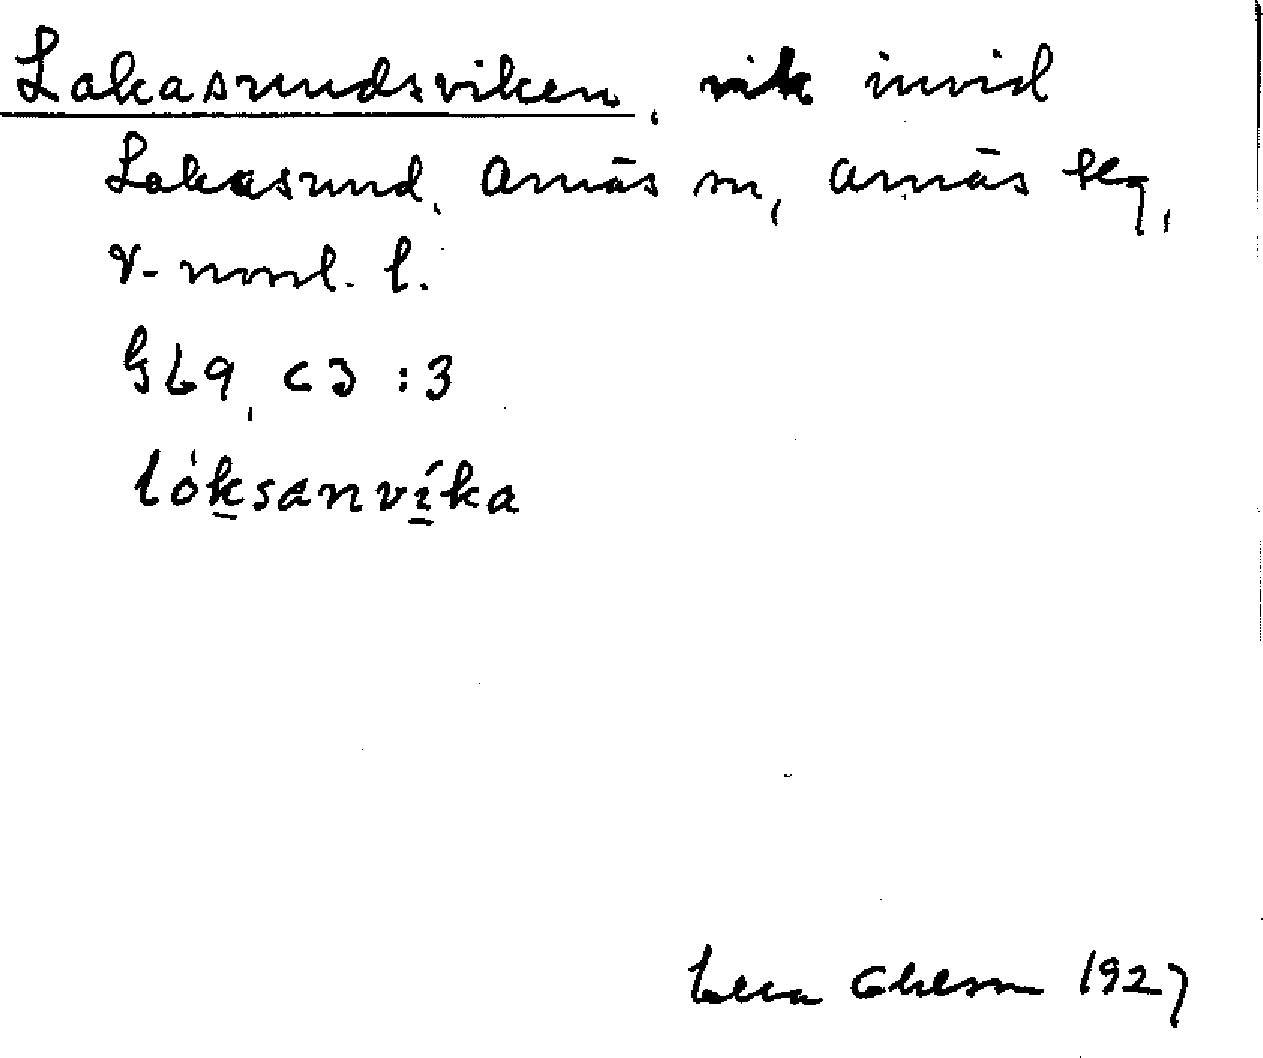 Lakasundsviken, vik invid
Lakasund, Arnäs sn, Arnäs skg,
V-norrl. l.
GL9, C3:3
lóksanvíka
1927